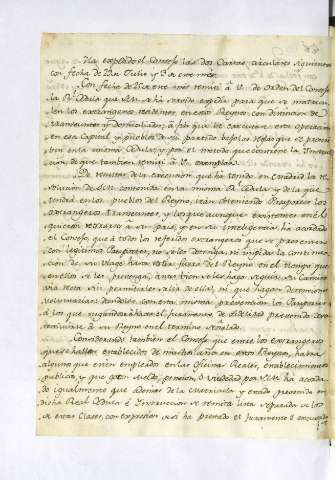 Ha expedido el Consejo las dos Cartas circulares siguientes
con fecha de 29 de Julio y 3 de este mes.
Con fecha de 21 de este mes remiti à V. de orden del Consejo
la Rl. Cedula que S.M. ha servido expedir para que se matricu-
len los extrangeros residentes en estos Reynos con distincion de
transeuntes y domiciliados, à fin que se execute esta operacion
en esa Capital y pueblos de su partido bajo las reglas que se prescri-
ben en la misma Cedula, y por el metodo que contiene la Instruc-
cion, de que tambien remiti à V. exemplar.
De resultas de la execucion que ha tenido en Madrid la re-
solucion de S.M. contenida en la misma Rl. Cedula, y de la que
tendrá en los pueblos del Reyno, irán obteniendo Pasaportes los
extrangeros transeuntes, y los que aunque existentes en el
quieren retirarse à su pais, y en su inteligencia ha acordado
el Consejo, que à todos los referidos extrangeros que se presenten
con legitimos Pasaportes, no se les detenga, ni impida la continua-
cion de su viage hasta salir fuera del Reyno en el tiempo que
en ellos se les prevenga, antes bien se les haga seguir su camino
via recta sin permitirles salir de ella, ni que hagan detenciones
voluntarias; dandoles con esta misma prevencion los Pasaportes
à los que rehusandose à hacer el juramento de fidelidad prevenido deban
restituirse à su Reyno en el termino señalado.
Considerando tambien el Consejo que entre los extrangeros
que se hallan establecidos de mucho años en estos Reynos, habrá
algunos que estén empleados en las Oficinas Reales, establecimientos
publicos, y que gozan sueldo, pension, ó viudedad por S.M. ha acorda-
do igualmente que ademas de la Matricula y estado prevenido en
dicha Real Cedula è Instruccion se remita lista separada de los
de estas clases, con expresion de si ha prestado el Juramento ó escusado